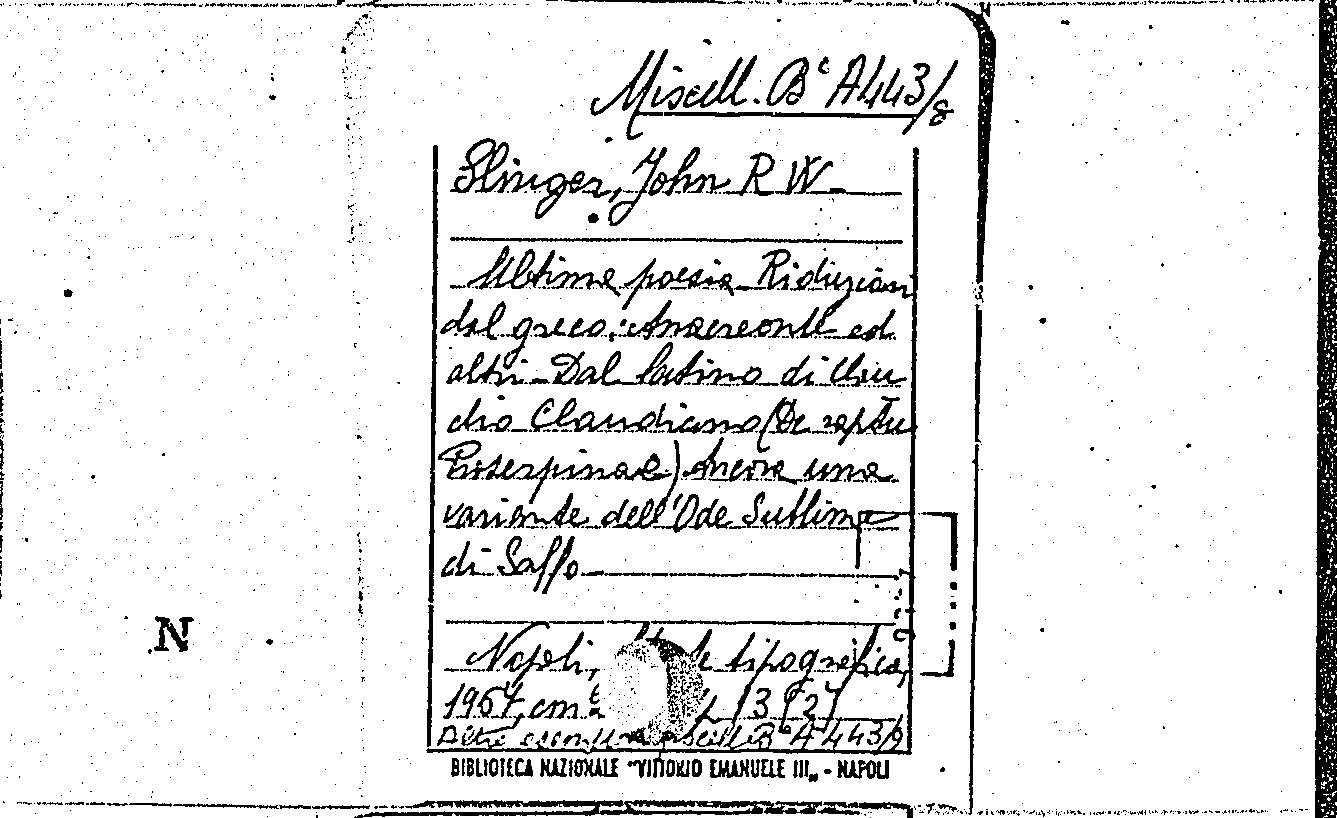 Miscell. Bc A443/8
Slinger, John R W
Ultime poesie - Riduzioni
dal greco: Anacreonte ed
altri - Dal latino di Clau
dio Claudiano (De raptu
Proserpinae) Ancora una
variante dell'Ode Sublime
di Saffo
N
Napoli, tipografica,
1967, cm
Altro esemplare Miscell. Bc A443/9
BIBLIOTECA NAZIONALE "VITTORIO EMANUELE III„ - NAPOLI